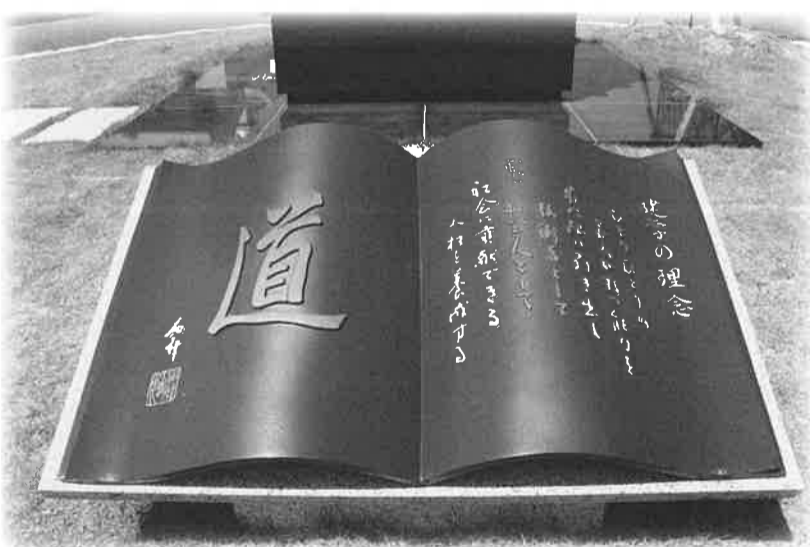 建学の理念
ひとりひとりの
もっている能力を
最大限に引き出し
技術者として
社会人として
社会に貢献できる
人材を養成する
道